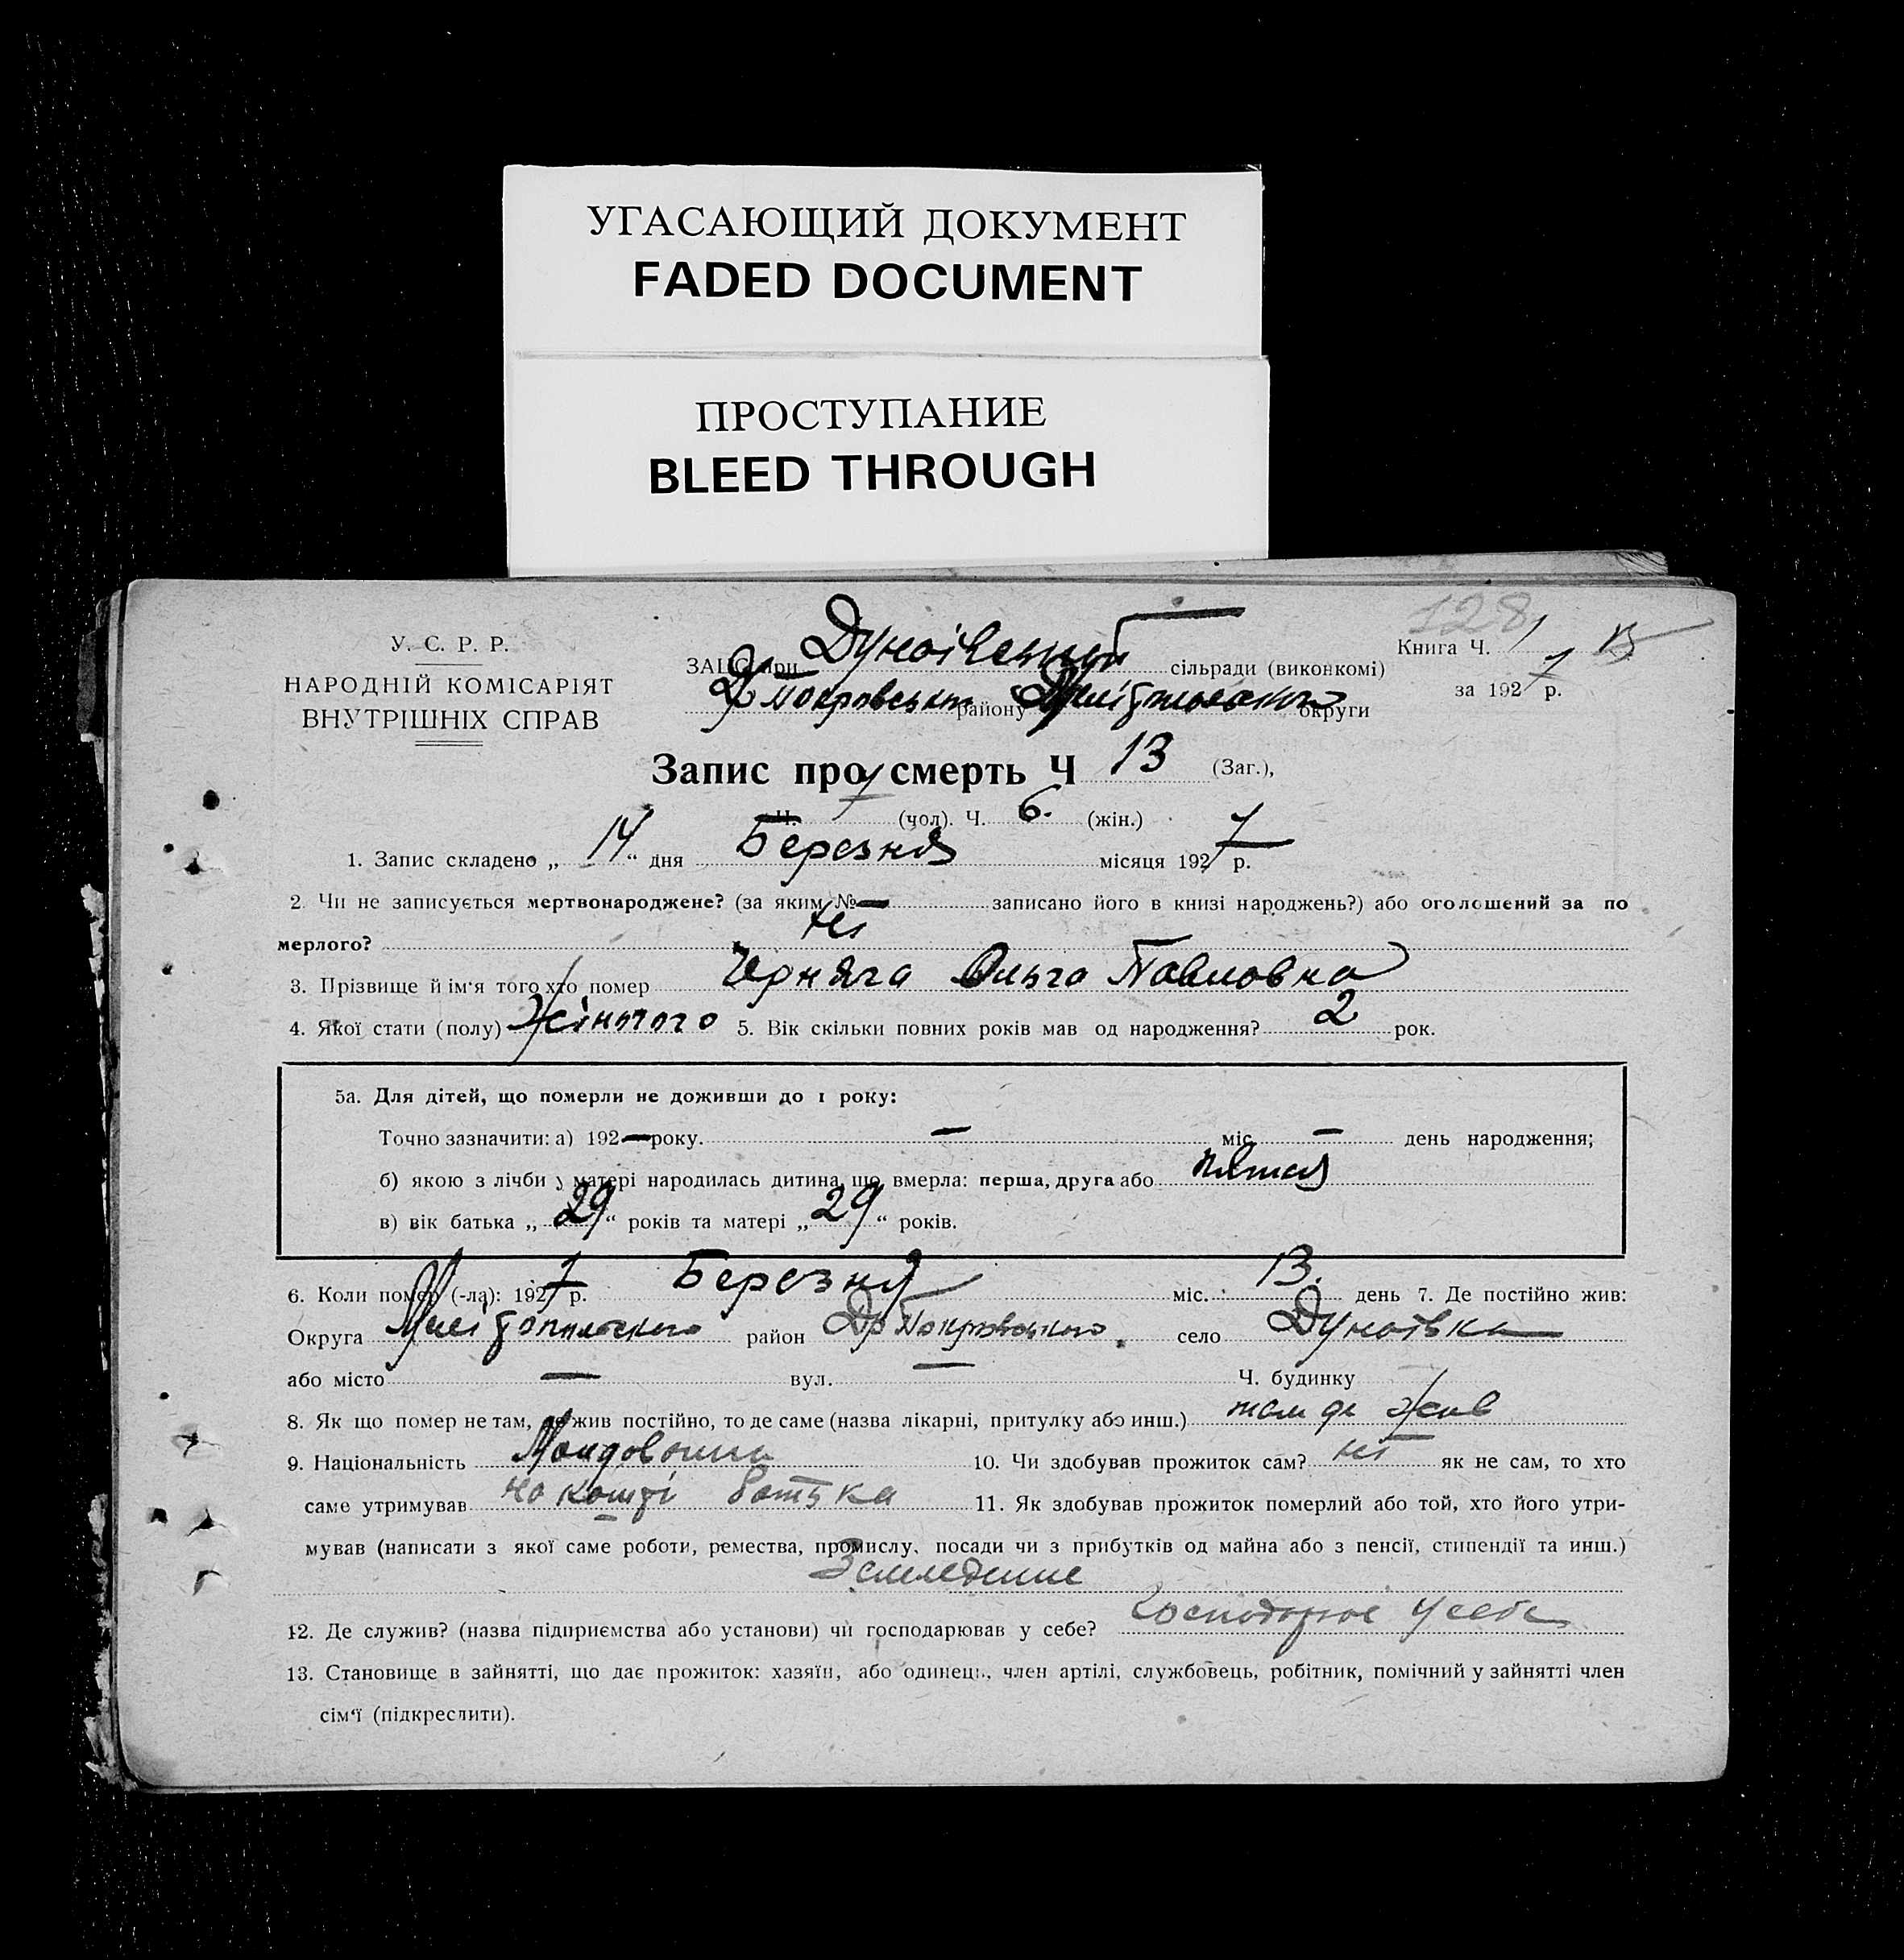 УГАСАЮЩИЙ ДОКУМЕНТ
FADED DOCUMENT
ПРОСТУПАНИЕ
BLEED THROUGH
128
У. С. Р. Р.
НАРОДНІЙ КОМІСАРІЯТ
ВНУТРІШНІХ СПРАВ
ЗАГС при Дунаівский сільради (виконкомі)
Книга Ч. 1
за 1927 р.
Покровськ району округи
Запис про смерть Ч 13 (Заг.),
Ч. 7 (чол). Ч. 6. (жін.)
1. Запис складено „ 14 “ дня Березня місяця 1927 р.
2. Чи не записується мертвонароджене? (за яким № — записано його в книзі народжень?) або оголошений за по
мерлого? ні
3. Прізвище й ім'я того хто помер Черняга Ольга Павловна
4. Якої стати (полу) Жіночого 5. Вік скільки повних років мав од народження? 2 рок.
5а. Для дітей, що померли не доживши до 1 року:
Точно зазначити: а) 192 — року. — міс. — день народження;
б) якою з лічби у матері народилась дитина що вмерла: перша, друга або пятая
в) вік батька „ 29 “ років та матері „ 29 “ років.
6. Коли помер (-ла): 1927 р. Березня міс. 13. день 7. Де постійно жив:
Округа Мелітопільского район Покровського село Дунаівка
або місто — вул. — Ч. будинку
8. Як що помер не там, де жив постійно, то де саме (назва лікарні, притулку або инш.) там де жив
9. Національність 10. Чи здобував прожиток сам? ні як не сам, то хто
саме утримував на кошті батька 11. Як здобував прожиток померлий або той, хто його утри-
мував (написати з якої саме роботи, ремества, промислу, посади чи з прибутків од майна або з пенсії, стипендії та инш.)
Земледеліе
12. Де служив? (назва підприємства або установи) чи господарював у себе? Господарює у себе
13. Становище в зайнятті, що дає прожиток: хазяїн, або одинець, член артілі, службовець, робітник, помічний у зайнятті член
сім'ї (підкреслити).